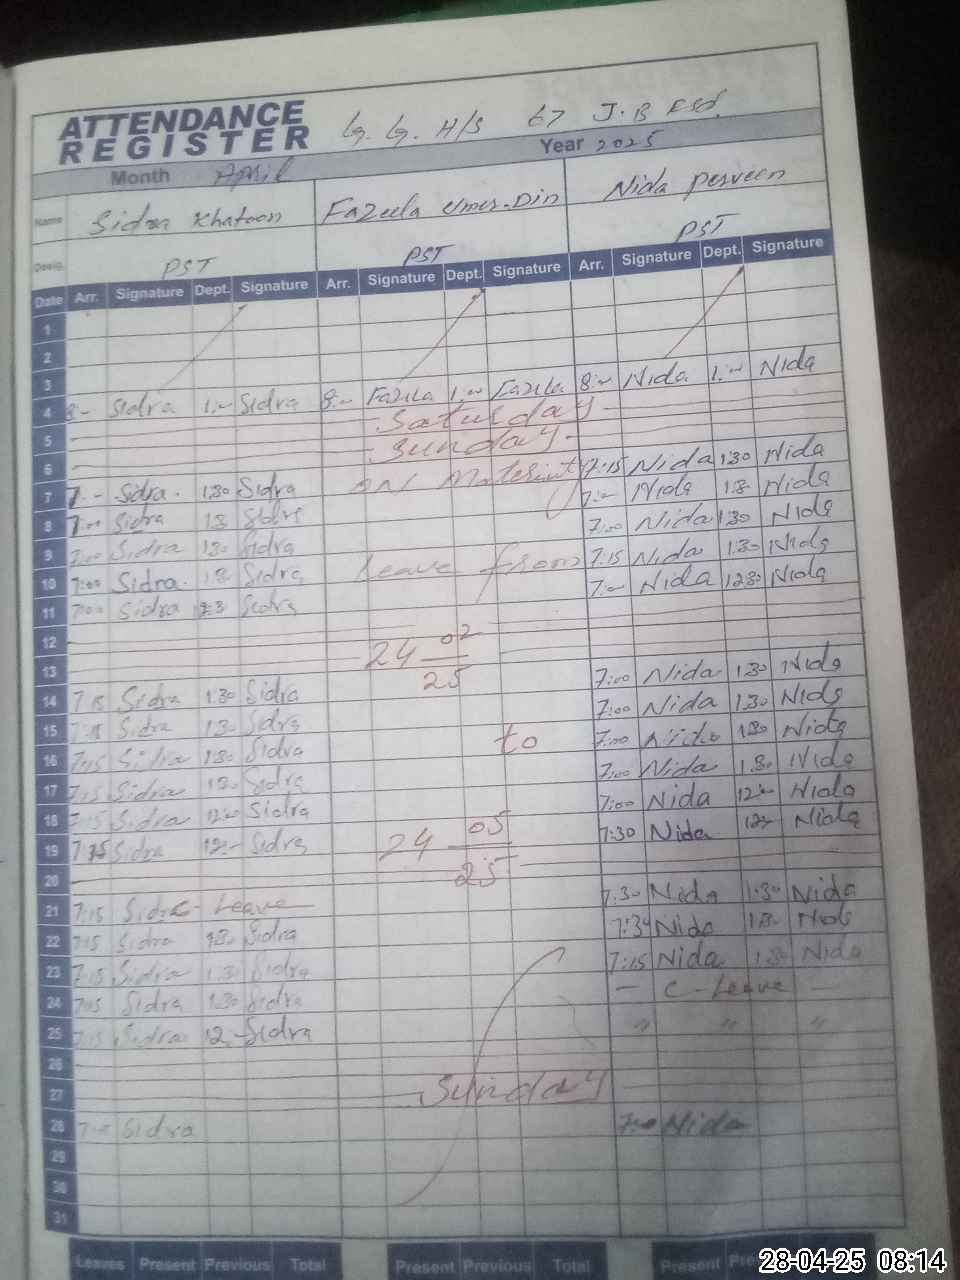 ATTENDANCE REGISTER G. G. H/S 67 J.B FSD.
Month April Year 2025
Name Sidra Khatoon Fazeela Umer.Din Nida Perveen
Desig. PST PST PST
Date Arr. Signature Dept. Signature Arr. Signature Dept. Signature Arr. Signature Dept. Signature
1
2
3
4 8:- Sidra 1:- Sidra 8:- Fazila 1:- Fazila 8:- Nida 1:- Nida
5 Saturday
6 Sunday
7 7:- Sidra 1:30 Sidra on Maternity 7:15 Nida 1:30 Nida
8 7:00 Sidra Sidra Nida Nida
9 7:00 Sidra 1:30 Sidra 7:00 Nida 1:30 Nida
10 7:00 Sidra Sidra Leave from 7:15 Nida 1:30 Nida
11 7:00 Sidra Sidra 7:- Nida 12:30 Nida
12 24 02
13 25
14 7:15 Sidra 1:30 Sidra 7:00 Nida 1:30 Nida
15 7:15 Sidra 1:30 Sidra 7:00 Nida 1:30 Nida
16 7:15 Sidra 1:30 Sidra to 7:00 Nida 1:30 Nida
17 7:15 Sidra 1:30 Sidra 7:00 Nida 1:30 Nida
18 7:15 Sidra Sidra 7:00 Nida Nida
19 7:15 Sidra 12:- Sidra 24 05 7:30 Nida Nida
20 25
21 7:15 Sidra C- Leave 7:30 Nida 1:30 Nida
22 7:15 Sidra 1:30 Sidra Nida 1:30 Nida
23 7:15 Sidra 1:30 Sidra 7:15 Nida 1:30 Nida
24 7:15 Sidra 1:30 Sidra — C-Leave —
25 7:15 Sidra 12 - Sidra " " "
26
27 Sunday
28 Sidra Nida
29
30
31
Leaves Present Previous Total Present Previous Total Present
28-04-25 08:14